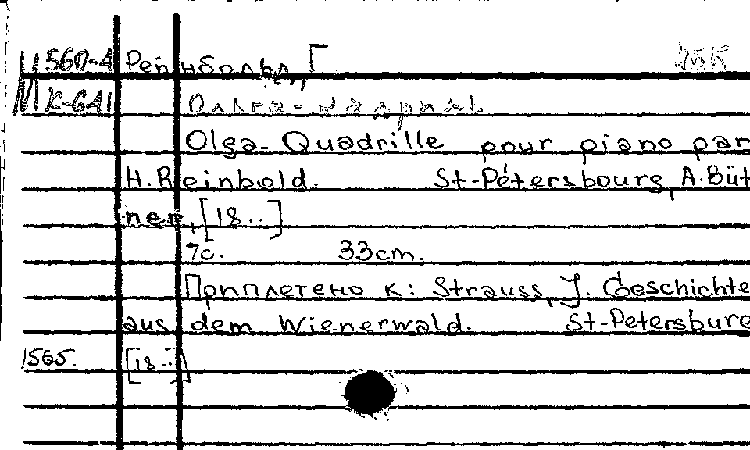 Ц 560-4 Рейнбольд, Г
М К-641 Ольга-кадриль
Olga-Quadrille pour piano par
H. Reinbold. St-Pétersbourg, A. Büt
ner, [18..]
7с. 33cm.
Приплетено к: Strauss, J. Geschichte
aus dem Wienerwald. St-Petersburg
1565. [18..]